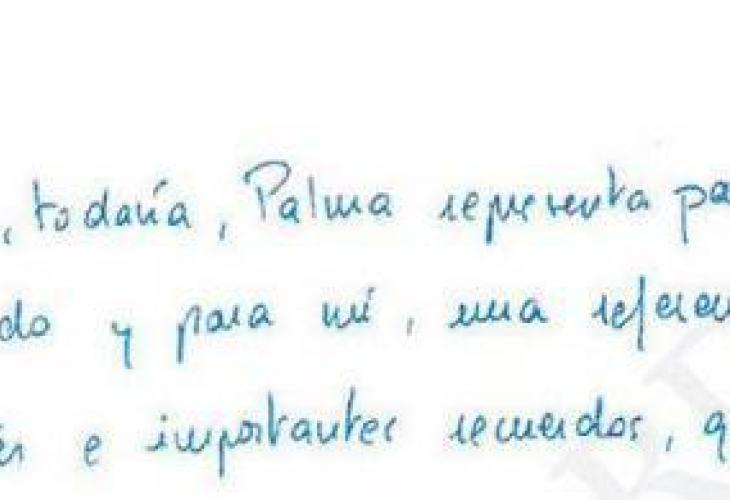 , todavía, Palma representa pa
do y para mí, una referen
e importantes recuerdos, q